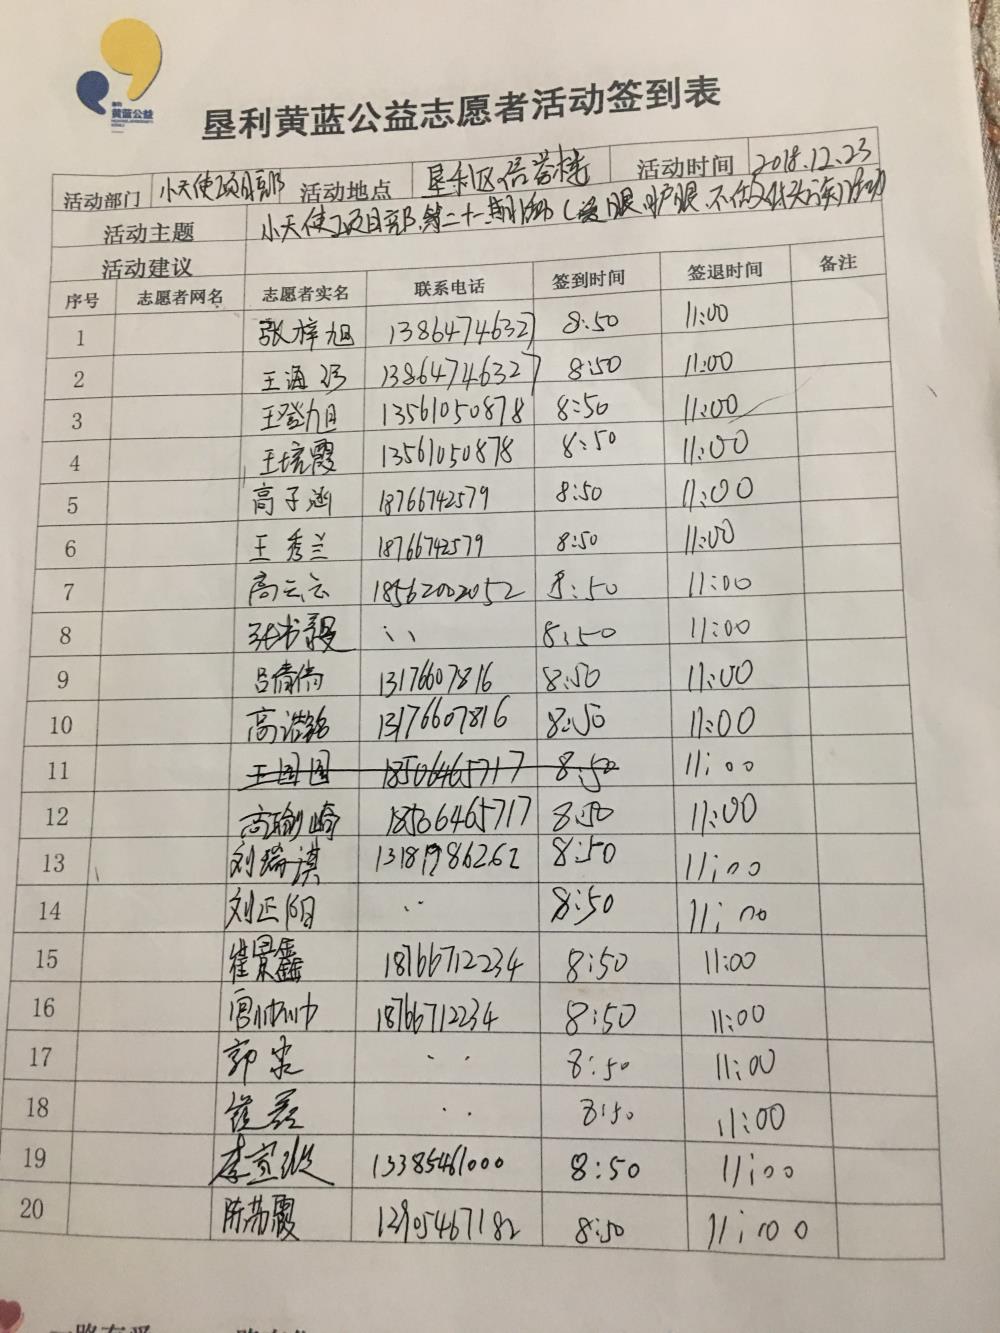 黄蓝公益
垦利黄蓝公益志愿者活动签到表
活动部门 小天使项目部 活动地点 垦利区信誉楼 活动时间 2018.12.23
活动主题 小天使项目部第二十一期活动(爱眼、护眼、不做低头族)活动
活动建议
序号 志愿者网名 志愿者实名 联系电话 签到时间 签退时间 备注
1 张梓旭 13864746327 8:50 11:00
2 王海 13864746327 8:50 11:00
3 王登旭 13561050878 8:50 11:00
4 王培霞 13561050878 8:50 11:00
5 高子涵 18766742579 8:50 11:00
6 王秀兰 18766742579 8:50 11:00
7 高云云 18562002052 8:50 11:00
8 8:50 11:00
9 吕倩倩 13176607816 8:50 11:00
10 高浩铭 13176607816 8:50 11:00
11 王国国 18506465717 8:50 11:00
12 18506465717 8:50 11:00
13 刘瑞淇 8:50 11:00
14 刘正阳 8:50 11:00
15 崔景鑫 18766712234 8:50 11:00
16 18766712234 8:50 11:00
17 郭 8:50 11:00
18 8:50 11:00
19 李宣 13385461000 8:50 11:00
20 8:50 11:00